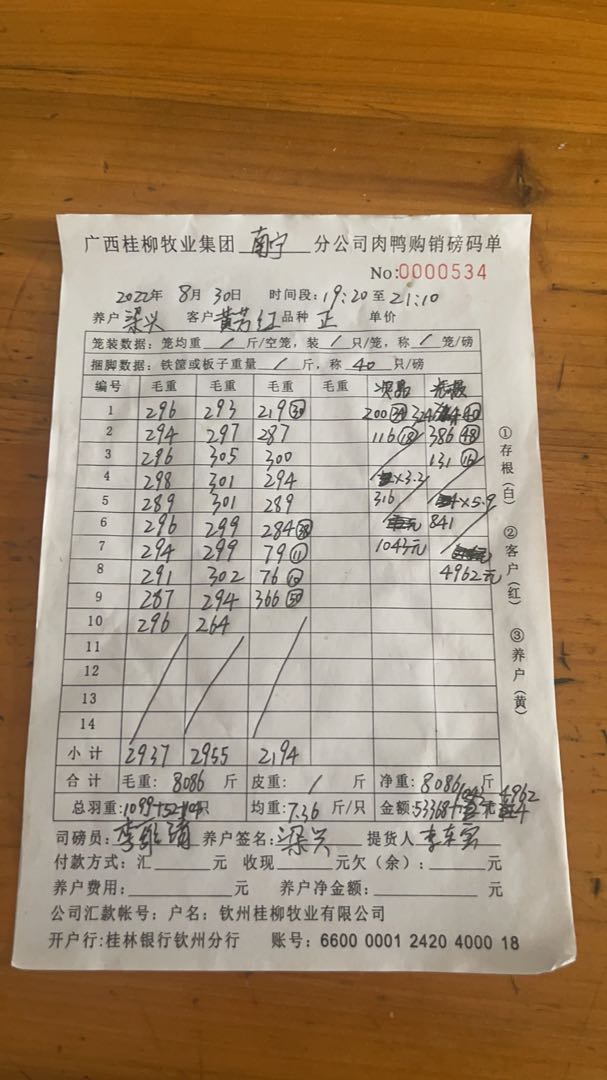 广西桂柳牧业集团 南宁 分公司肉鸭购销磅码单
No:0000534
2022年 8月 30日 时间段:19:20至21:10
养户 梁兴 客户 黄芳红 品种 正 单价
笼装数据:笼均重 / 斤/空笼,装 / 只/笼,称 / 笼/磅
捆脚数据:铁筐或板子重量 / 斤,称 40 只/磅
编号 毛重 毛重 毛重 毛重 次品
1 296 293 219(30) 200(34) (40)
2 294 297 287 116(18) 386(48)
3 296 305 300 131(16)
4 298 301 294 ×3.3
5 289 301 289 316 ×5.9
6 296 299 284(38) 841
7 294 299 79(11) 1043元
8 291 302 76(10) 4962元
9 287 294 366(50)
10 296 264
11
12
13
14
小计 2937 2955 2194
合计 毛重: 8086 斤 皮重: / 斤 净重: 8086 斤
总羽重:1099+52+104只 均重:7.36 斤/只 金额:53368+1043 元 4962
司磅员: 养户签名: 梁兴 提货人
付款方式:汇 元 收现 元欠(余): 元
养户费用: 元 养户净金额: 元
公司汇款帐号:户名:钦州桂柳牧业有限公司
开户行:桂林银行钦州分行 账号:6600 0001 2420 4000 18
①存根(白) ②客户(红) ③养户(黄)